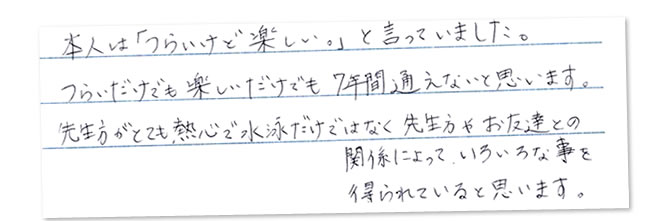 本人は「つらいけど楽しい。」と言っていました。
つらいだけでも楽しいだけでも7年間通えないと思います。
先生方がとても熱心で水泳だけではなく先生方やお友達との
関係によって、いろいろな事を
得られていると思います。